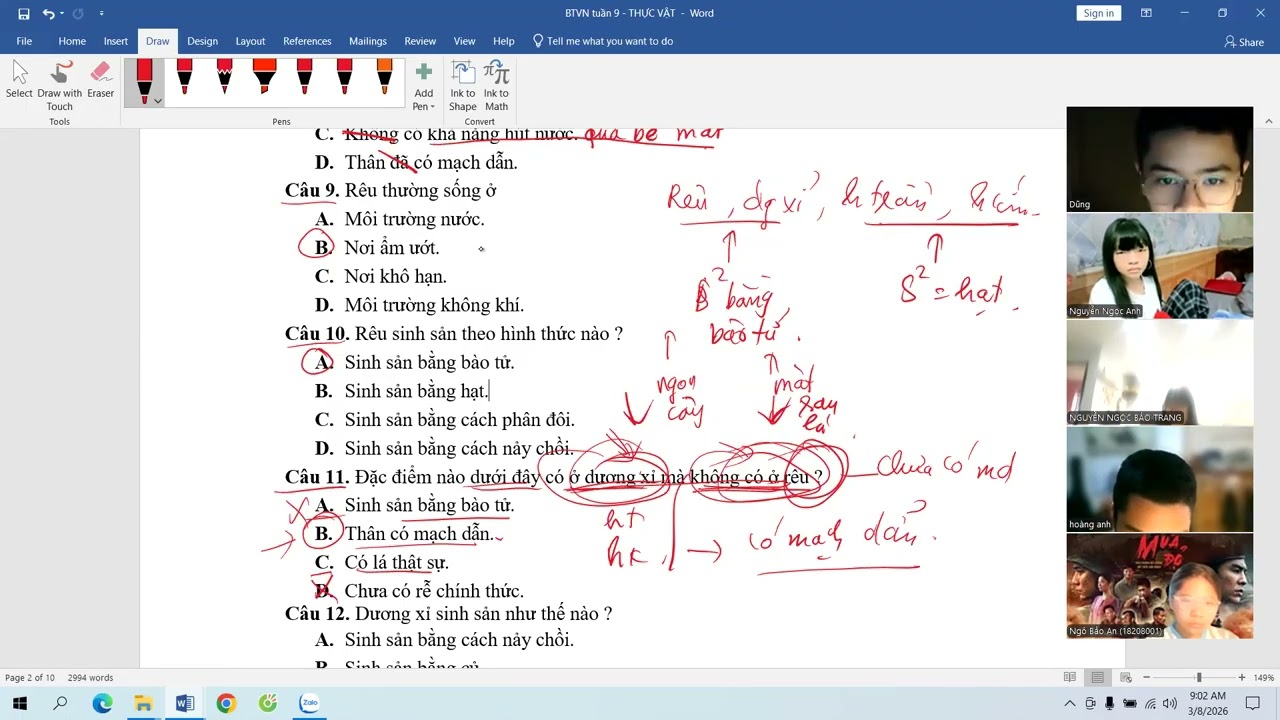 BTVN tuần 9 - THỰC VẬT - Word
Sign in
File Home Insert Draw Design Layout References Mailings Review View Help Tell me what you want to do
Share
Select Draw with Touch Eraser
Add Pen
Ink to Shape
Ink to Math
Tools Pens Convert
C. Không có khả năng hút nước. qua bề mặt
D. Thân đã có mạch dẫn.
Câu 9. Rêu thường sống ở
A. Môi trường nước.
B. Nơi ẩm ướt.
C. Nơi khô hạn.
D. Môi trường không khí.
Rêu, dg xỉ, h trần, h kín
S² bằng bào tử.
S² = hạt.
Câu 10. Rêu sinh sản theo hình thức nào ?
A. Sinh sản bằng bào tử.
B. Sinh sản bằng hạt.
C. Sinh sản bằng cách phân đôi.
D. Sinh sản bằng cách nảy chồi.
ngọn cây
mặt sau lá
Câu 11. Đặc điểm nào dưới đây có ở dương xỉ mà không có ở rêu ?
chưa có md
A. Sinh sản bằng bào tử.
B. Thân có mạch dẫn.
C. Có lá thật sự.
D. Chưa có rễ chính thức.
ht
hk
có mạch dẫn.
Câu 12. Dương xỉ sinh sản như thế nào ?
A. Sinh sản bằng cách nảy chồi.
B. Sinh sản bằng củ.
Dũng
Nguyễn Ngọc Anh
NGUYỄN NGỌC BẢO TRANG
hoàng anh
MƯA ĐỎ
Ngô Bảo An (18208001)
Page 2 of 10 2994 words
149%
Zalo
9:02 AM
3/8/2026